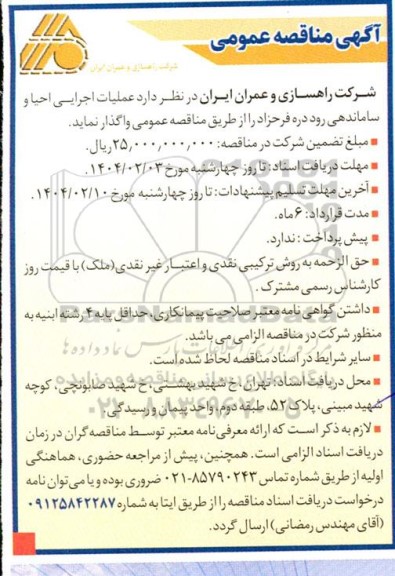 آگهی مناقصه عمومی
شرکت راهسازی و عمران ایران
شرکت راهسازی و عمران ایران در نظر دارد عملیات اجرایی احیا و
ساماندهی رود دره فرحزاد را از طریق مناقصه عمومی واگذار نماید.
مبلغ تضمین شرکت در مناقصه: ۲۵,۰۰۰,۰۰۰,۰۰۰ ریال.
مهلت دریافت اسناد: تا روز چهارشنبه مورخ ۱۴۰۴/۰۲/۰۳.
آخرین مهلت تسلیم پیشنهادات: تا روز چهارشنبه مورخ ۱۴۰۴/۰۲/۱۰.
مدت قرارداد: ۶ ماه.
پیش پرداخت: ندارد.
حق الزحمه به روش ترکیبی نقدی و اعتبار غیر نقدی (ملک) با قیمت روز
کارشناس رسمی مشترک.
داشتن گواهی نامه معتبر صلاحیت پیمانکاری، حداقل پایه ۴ رشته ابنیه به
منظور شرکت در مناقصه الزامی می باشد.
سایر شرایط در اسناد مناقصه لحاظ شده است.
محل دریافت اسناد: تهران، خ شهید بهشتی، خ شهید صابونچی، کوچه
شهید مبینی، پلاک ۵۲، طبقه دوم، واحد پیمان و رسیدگی.
لازم به ذکر است که ارائه معرفی نامه معتبر توسط مناقصه گران در زمان
دریافت اسناد الزامی است. همچنین، پیش از مراجعه حضوری، هماهنگی
اولیه از طریق شماره تماس ۸۵۷۹۰۲۴۳-۰۲۱ ضروری بوده و یا می توان نامه
درخواست دریافت اسناد مناقصه را از طریق ایتا به شماره ۰۹۱۲۵۸۴۲۲۸۷
(آقای مهندس رمضانی) ارسال گردد.